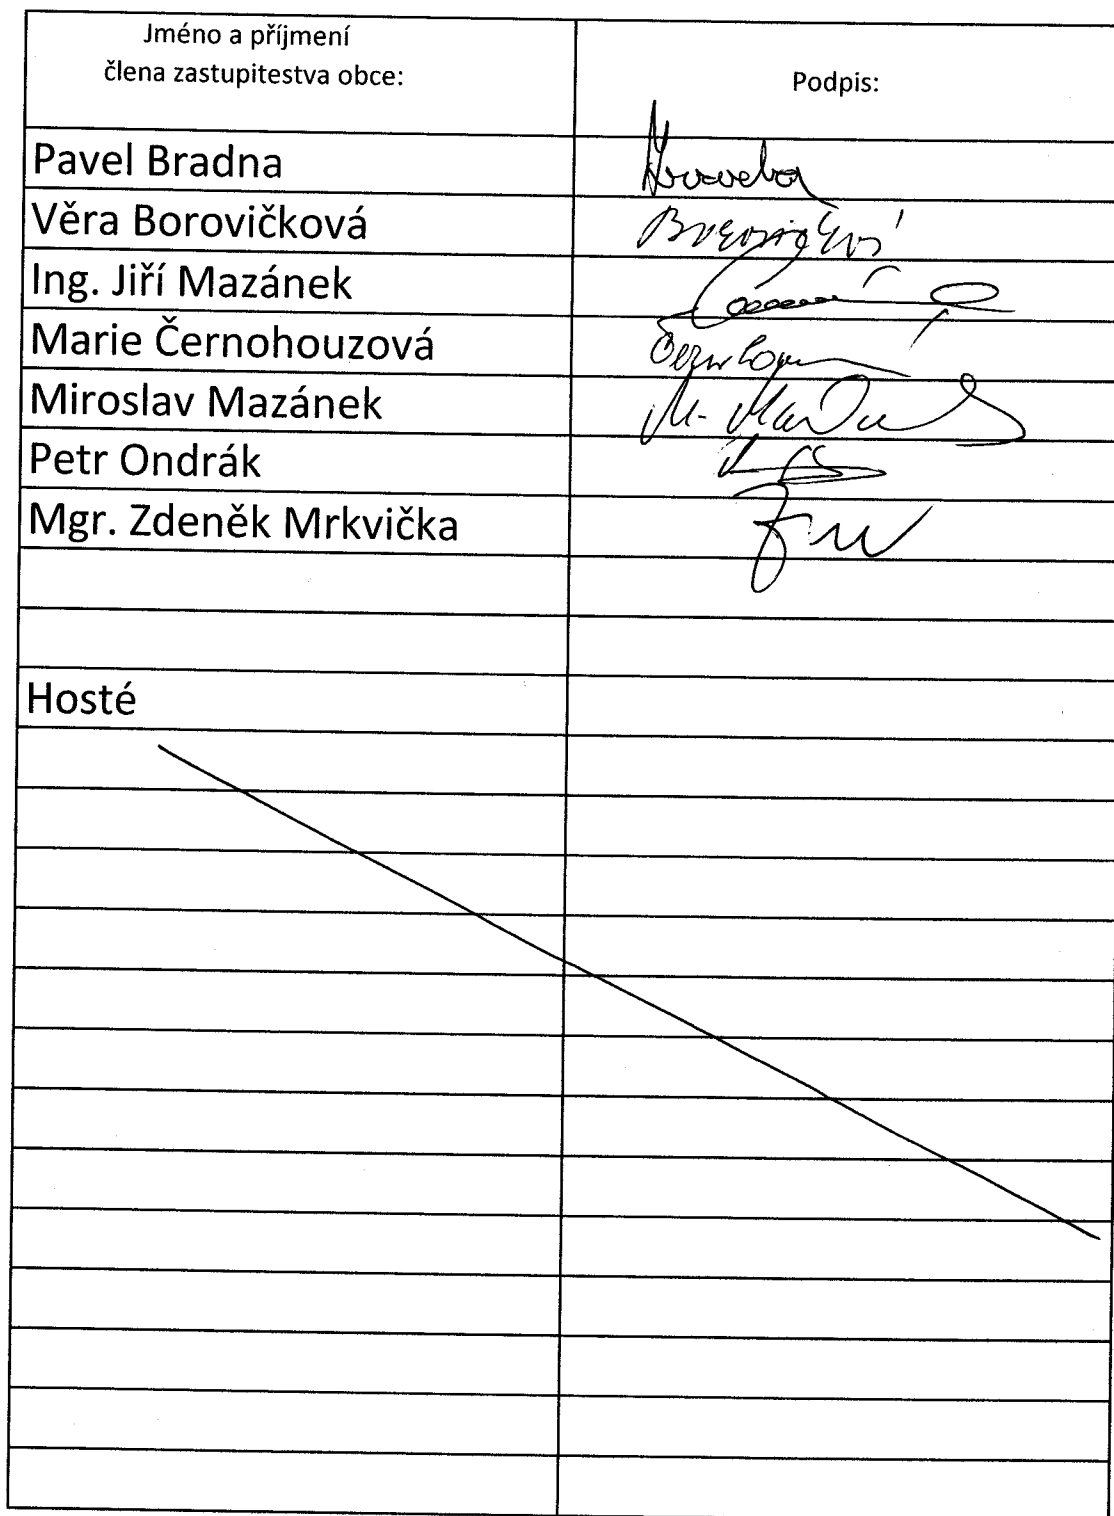 Jméno a příjmení
člena zastupitestva obce:
Podpis:
Pavel Bradna
Věra Borovičková
Ing. Jiří Mazánek
Marie Černohouzová
Miroslav Mazánek
Petr Ondrák
Mgr. Zdeněk Mrkvička
Hosté